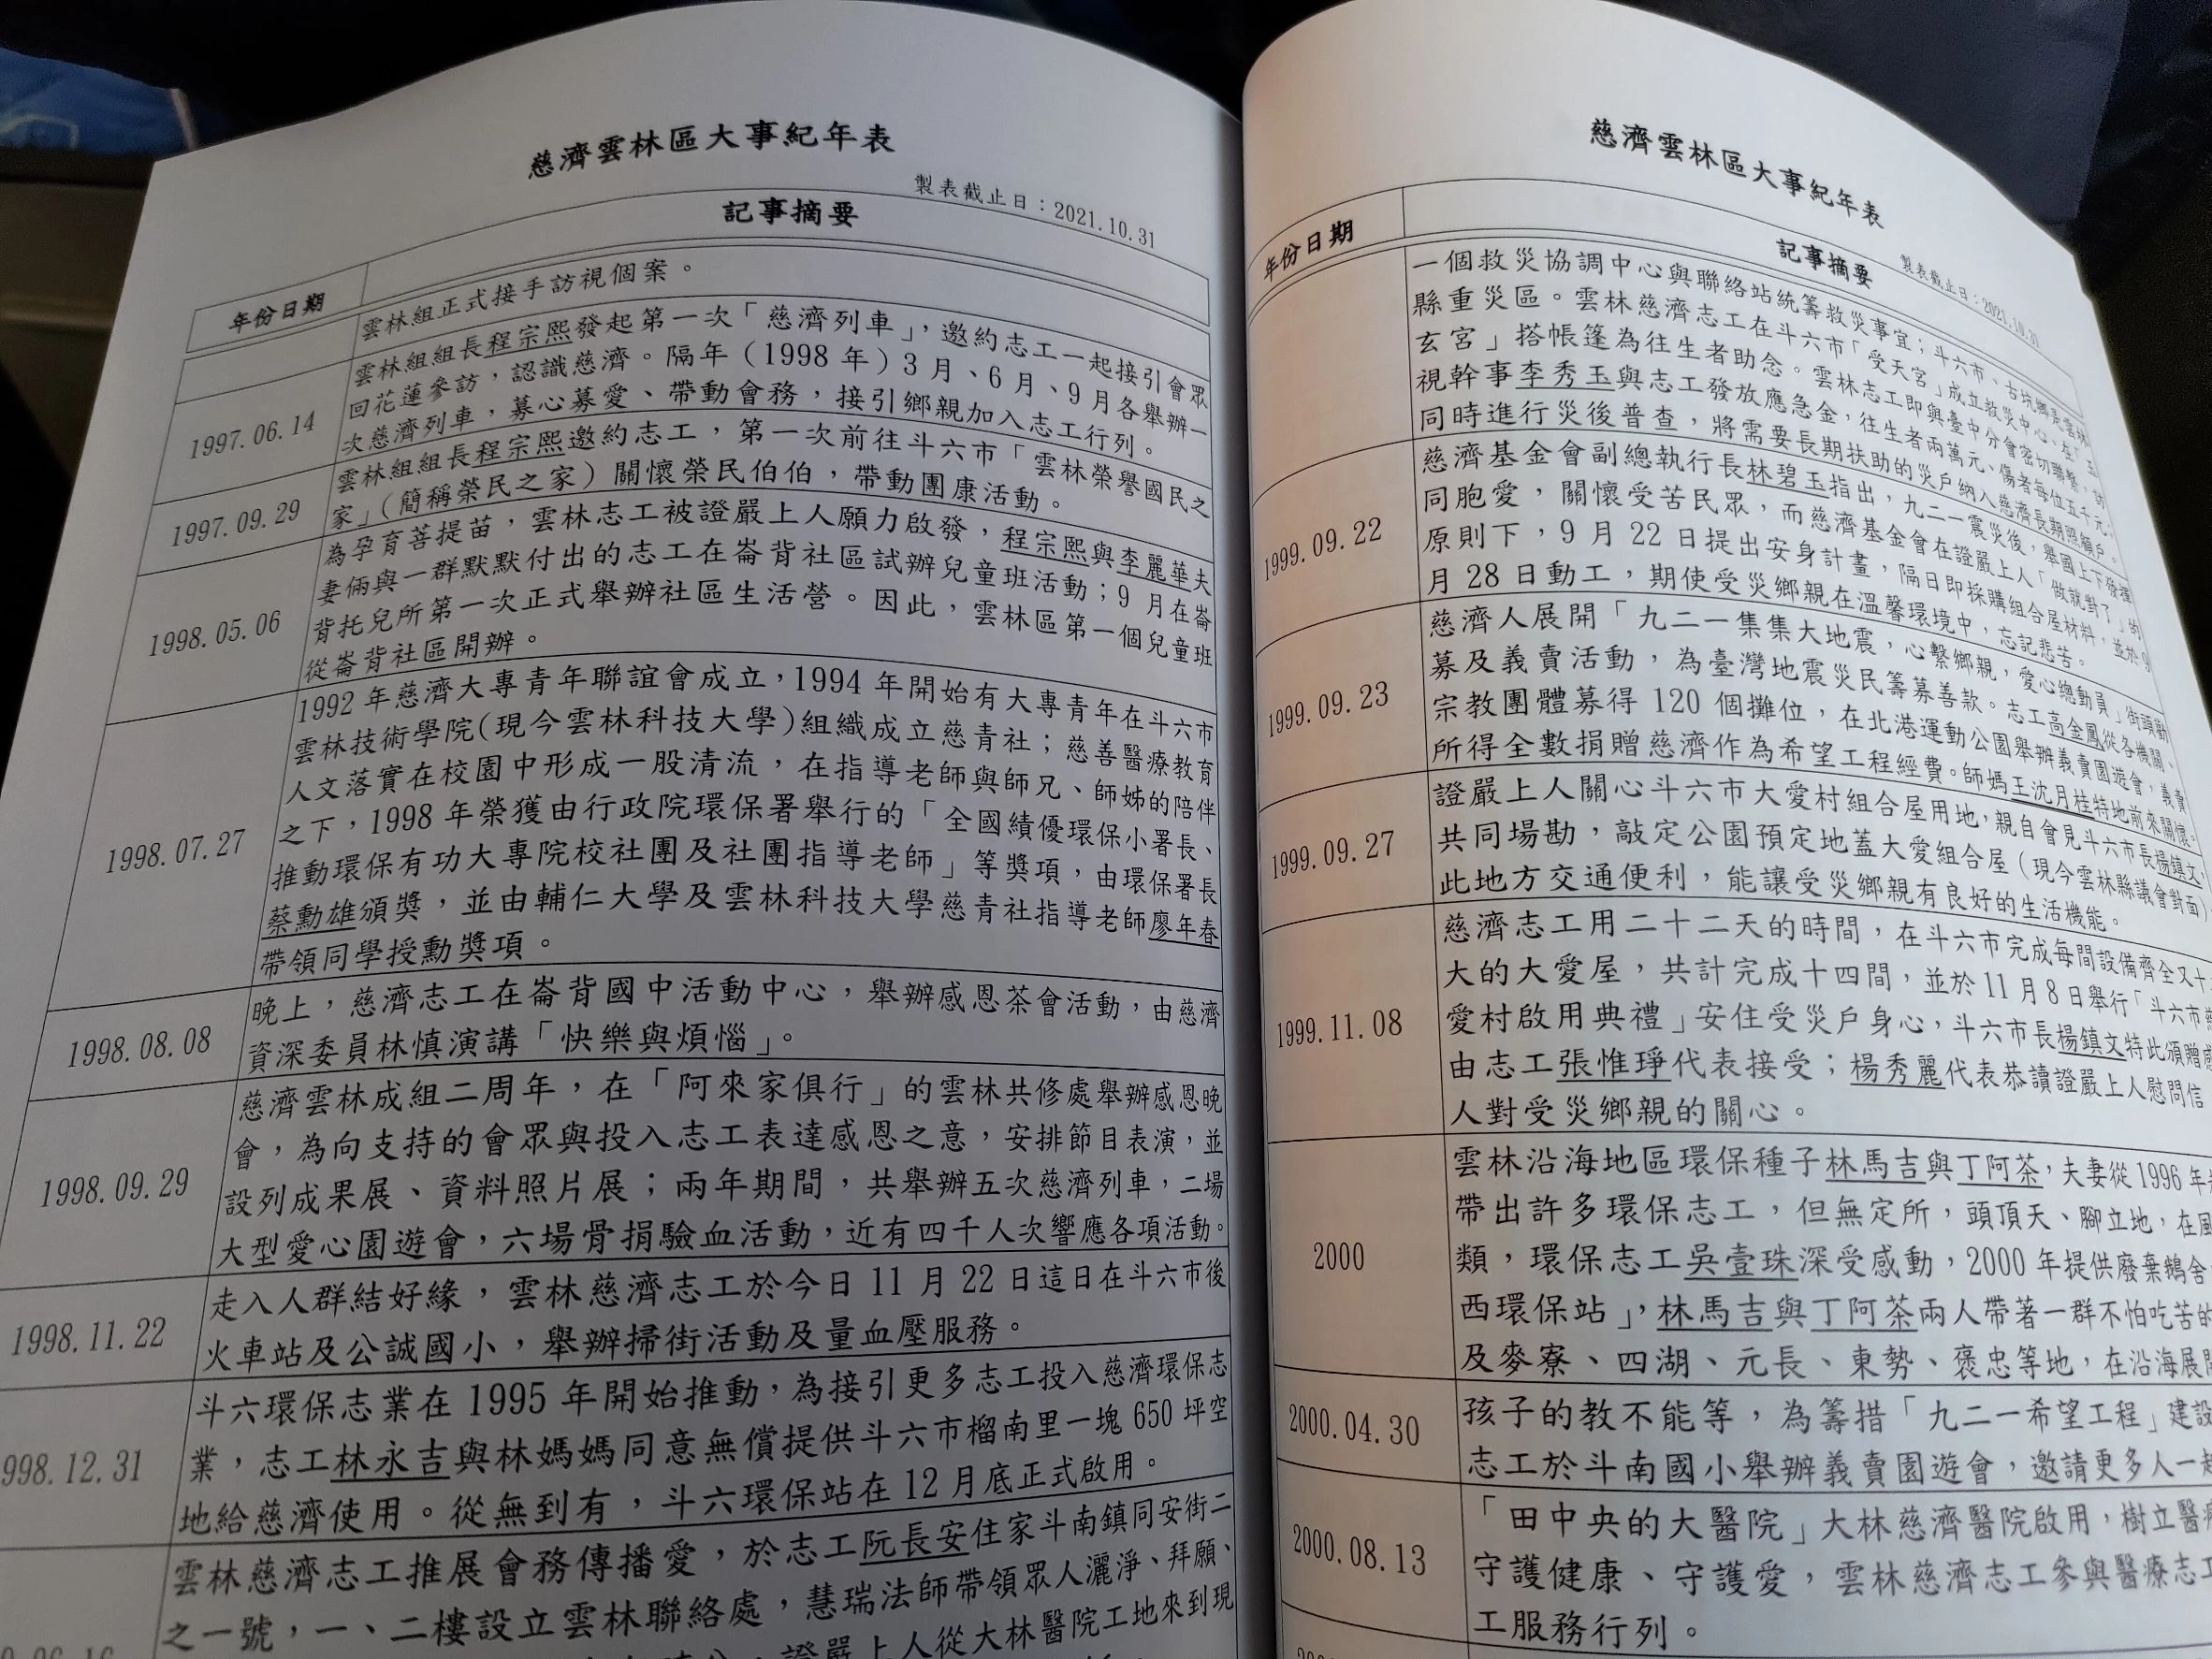 慈濟雲林區大事紀年表
製表截止日：2021.10.31
年份日期
記事摘要
雲林組正式接手訪視個案。
1997.06.14
雲林組組長程宗熙發起第一次「慈濟列車」，邀約志工一起接引會眾
回花蓮參訪，認識慈濟。隔年（1998 年）3 月、6 月、9 月各舉辦一
次慈濟列車，募心募愛、帶動會務，接引鄉親加入志工行列。
1997.09.29
雲林組組長程宗熙邀約志工，第一次前往斗六市「雲林榮譽國民之
家」（簡稱榮民之家）關懷榮民伯伯，帶動團康活動。
1998.05.06
為孕育菩提苗，雲林志工被證嚴上人願力啟發，程宗熙與李麗華夫
妻倆與一群默默付出的志工在崙背社區試辦兒童班活動；9 月在崙
背托兒所第一次正式舉辦社區生活營。因此，雲林區第一個兒童班
從崙背社區開辦。
1998.07.27
1992 年慈濟大專青年聯誼會成立，1994 年開始有大專青年在斗六市
雲林技術學院(現今雲林科技大學)組織成立慈青社；慈善醫療教育
人文落實在校園中形成一股清流，在指導老師與師兄、師姊的陪伴
之下，1998 年榮獲由行政院環保署舉行的「全國績優環保小署長、
推動環保有功大專院校社團及社團指導老師」等獎項，由環保署長
蔡勳雄頒獎，並由輔仁大學及雲林科技大學慈青社指導老師廖年春
帶領同學授勳獎項。
1998.08.08
晚上，慈濟志工在崙背國中活動中心，舉辦感恩茶會活動，由慈濟
資深委員林慎演講「快樂與煩惱」。
1998.09.29
慈濟雲林成組二周年，在「阿來家俱行」的雲林共修處舉辦感恩晚
會，為向支持的會眾與投入志工表達感恩之意，安排節目表演，並
設列成果展、資料照片展；兩年期間，共舉辦五次慈濟列車，二場
大型愛心園遊會，六場骨捐驗血活動，近有四千人次響應各項活動。
1998.11.22
走入人群結好緣，雲林慈濟志工於今日 11 月 22 日這日在斗六市後
火車站及公誠國小，舉辦掃街活動及量血壓服務。
998.12.31
斗六環保志業在 1995 年開始推動，為接引更多志工投入慈濟環保志
業，志工林永吉與林媽媽同意無償提供斗六市榴南里一塊 650 坪空
地給慈濟使用。從無到有，斗六環保站在 12 月底正式啟用。
雲林慈濟志工推展會務傳播愛，於志工阮長安住家斗南鎮同安街二
之一號，一、二樓設立雲林聯絡處，慧瑞法師帶領眾人灑淨、拜願、
證嚴上人從大林醫院工地來到現
慈濟雲林區大事紀年表
製表截止日：2021.10.31
年份日期
記事摘要
一個救災協調中心與聯絡站統籌救災事宜；斗六市、古坑鄉是雲林
縣重災區。雲林慈濟志工在斗六市「受天宮」成立救災中心、在「玉
玄宮」搭帳篷為往生者助念。雲林志工即與臺中分會密切聯繫，訪
視幹事李秀玉與志工發放應急金，往生者兩萬元、傷者每位五千元；
同時進行災後普查，將需要長期扶助的災戶納入慈濟長期照顧戶。
1999.09.22
慈濟基金會副總執行長林碧玉指出，九二一震災後，舉國上下發揮
同胞愛，關懷受苦民眾，而慈濟基金會在證嚴上人「做就對了」的
原則下，9 月 22 日提出安身計畫，隔日即採購組合屋材料，並於 9
月 28 日動工，期使受災鄉親在溫馨環境中，忘記悲苦。
1999.09.23
慈濟人展開「九二一集集大地震，心繫鄉親，愛心總動員」街頭勸
募及義賣活動，為臺灣地震災民籌募善款。志工高金鳳從各機關、
宗教團體募得 120 個攤位，在北港運動公園舉辦義賣園遊會，義賣
所得全數捐贈慈濟作為希望工程經費。師媽王沈月桂特地前來關懷。
1999.09.27
證嚴上人關心斗六市大愛村組合屋用地，親自會見斗六市長楊鎮文，
共同場勘，敲定公園預定地蓋大愛組合屋（現今雲林縣議會對面），
此地方交通便利，能讓受災鄉親有良好的生活機能。
1999.11.08
慈濟志工用二十二天的時間，在斗六市完成每間設備齊全又十
大的大愛屋，共計完成十四間，並於 11 月 8 日舉行「斗六市
愛村啟用典禮」安住受災戶身心，斗六市長楊鎮文特此頒贈
由志工張惟琤代表接受；楊秀麗代表恭讀證嚴上人慰問信
人對受災鄉親的關心。
2000
雲林沿海地區環保種子林馬吉與丁阿茶，夫妻從 1996 年
帶出許多環保志工，但無定所，頭頂天、腳立地，在風
類，環保志工吳壹珠深受感動，2000 年提供廢棄鵝舍
西環保站」，林馬吉與丁阿茶兩人帶著一群不怕吃苦的
及麥寮、四湖、元長、東勢、褒忠等地，在沿海展
2000.04.30
孩子的教不能等，為籌措「九二一希望工程」建設
志工於斗南國小舉辦義賣園遊會，邀請更多人一起
2000.08.13
「田中央的大醫院」大林慈濟醫院啟用，樹立醫
守護健康、守護愛，雲林慈濟志工參與醫療志工
工服務行列。